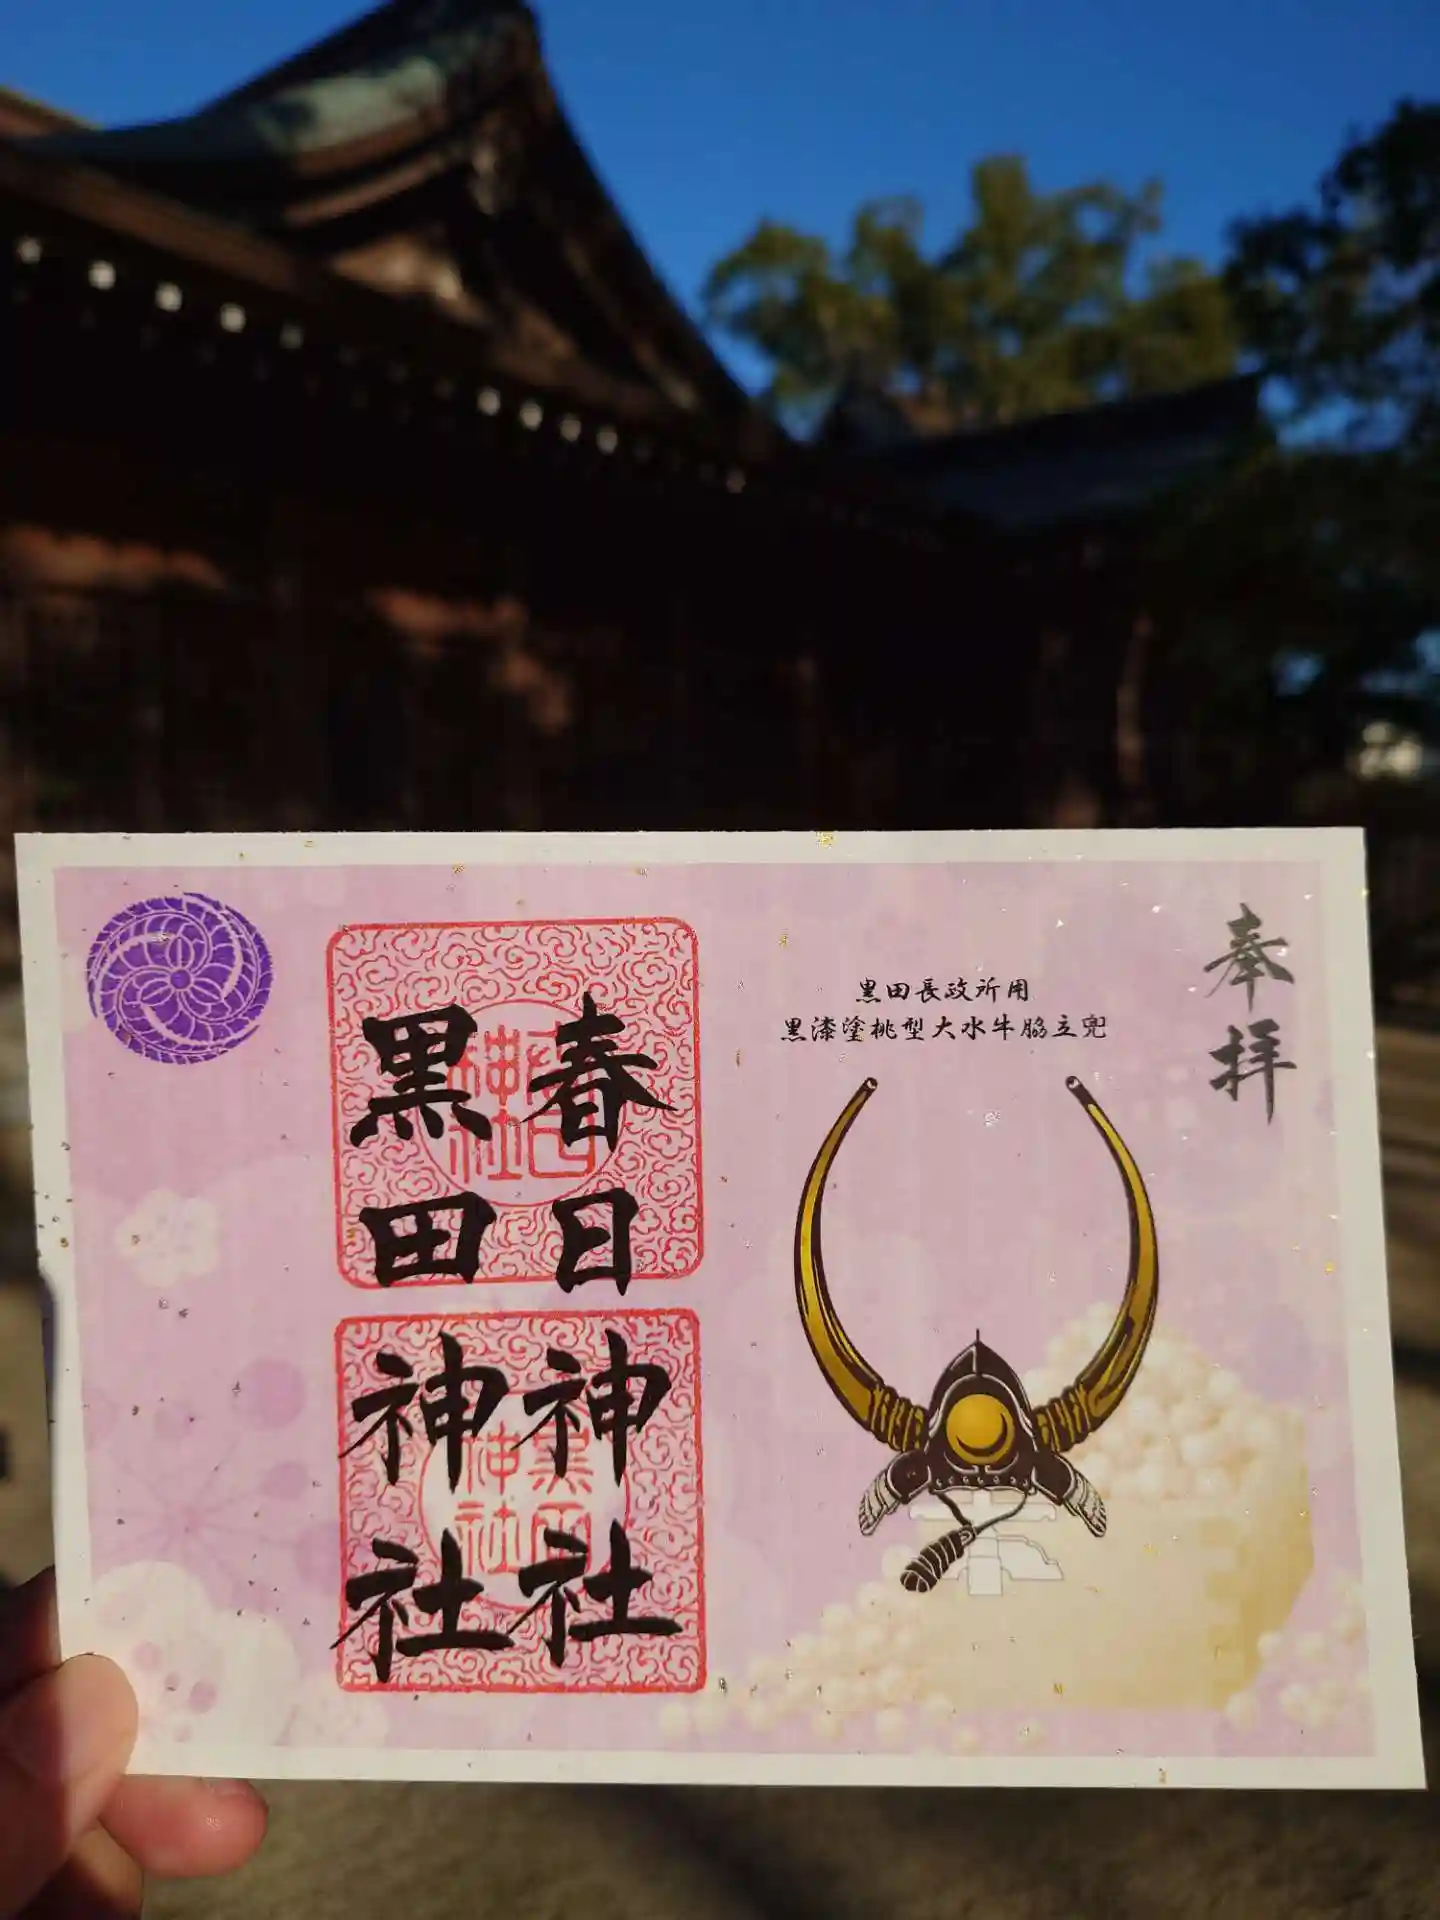 奉拝
黒田長政所用
黒漆塗桃型大水牛脇立兜
春日神社
黒田神社
春日神社
黒田神社